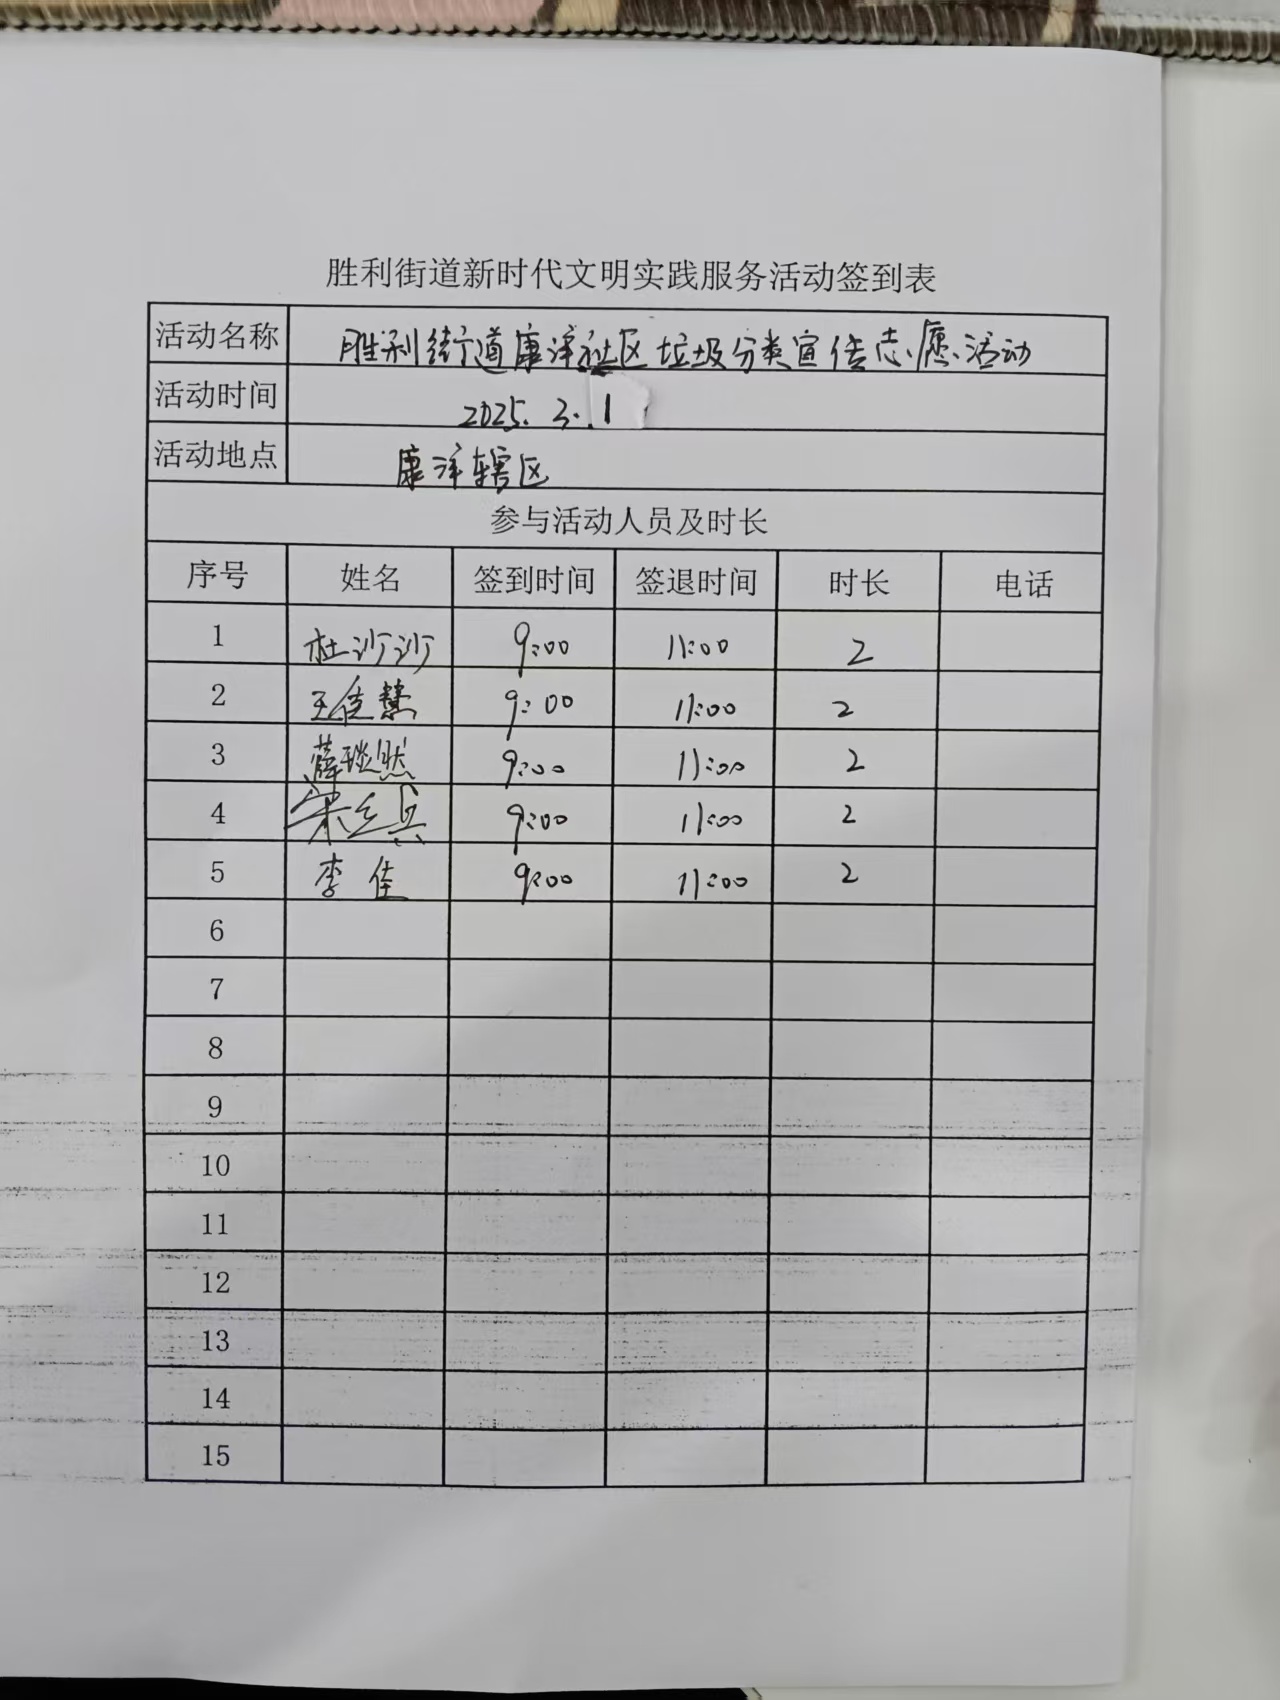 胜利街道新时代文明实践服务活动签到表
活动名称 胜利街道康泽社区垃圾分类宣传志愿活动
活动时间 2025.3.1
活动地点 康泽辖区
参与活动人员及时长
序号 姓名 签到时间 签退时间 时长 电话
1 杜沙沙 9:00 11:00 2
2 王佳慧 9:00 11:00 2
3 薛琰然 9:00 11:00 2
4 9:00 11:00 2
5 李佳 9:00 11:00 2
6
7
8
9
10
11
12
13
14
15